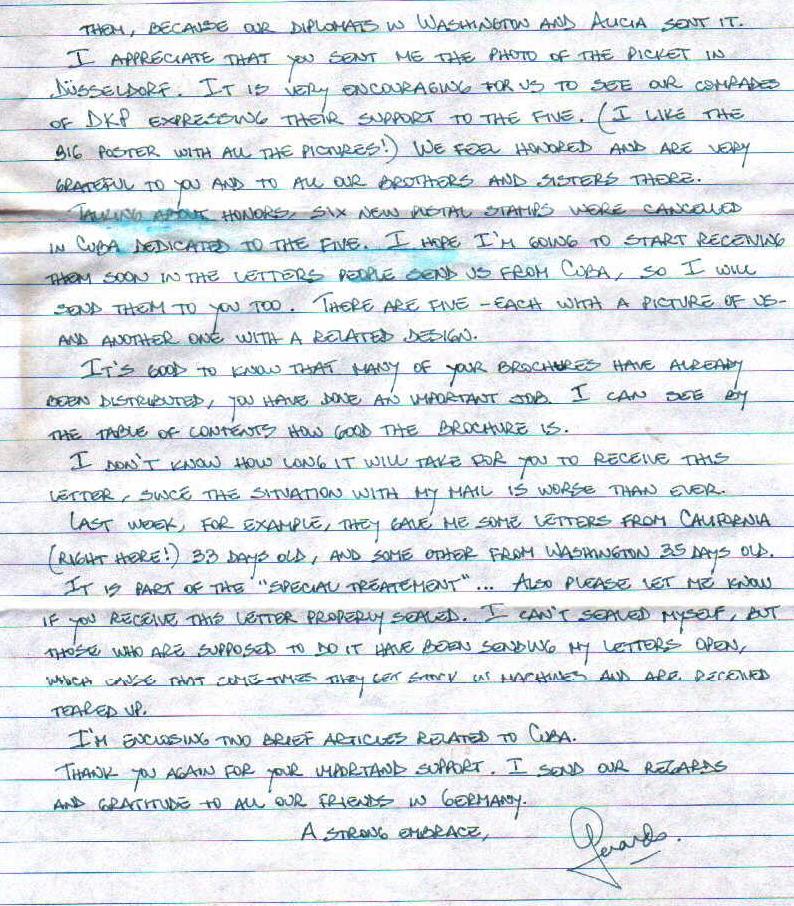 THEM, BECAUSE OUR DIPLOMATS IN WASHINGTON AND ALICIA SENT IT.
I APPRECIATE THAT YOU SENT ME THE PHOTO OF THE PICKET IN
DÜSSELDORF. IT IS VERY ENCOURAGING FOR US TO SEE OUR COMRADES
OF DKP EXPRESSING THEIR SUPPORT TO THE FIVE. (I LIKE THE
BIG POSTER WITH ALL THE PICTURES!) WE FEEL HONORED AND ARE VERY
GRATEFUL TO YOU AND TO ALL OUR BROTHERS AND SISTERS THERE.
TALKING ABOUT HONORS, SIX NEW POSTAL STAMPS WERE CANCELLED
IN CUBA DEDICATED TO THE FIVE. I HOPE I'M GOING TO START RECEIVING
THEM SOON IN THE LETTERS PEOPLE SEND US FROM CUBA, SO I WILL
SEND THEM TO YOU TOO. THERE ARE FIVE -EACH WITH A PICTURE OF US-
AND ANOTHER ONE WITH A RELATED DESIGN.
IT'S GOOD TO KNOW THAT MANY OF YOUR BROCHURES HAVE ALREADY
BEEN DISTRIBUTED, YOU HAVE DONE AN IMPORTANT JOB. I CAN SEE BY
THE TABLE OF CONTENTS HOW GOOD THE BROCHURE IS.
I DON'T KNOW HOW LONG IT WILL TAKE FOR YOU TO RECEIVE THIS
LETTER, SINCE THE SITUATION WITH MY MAIL IS WORSE THAN EVER.
LAST WEEK, FOR EXAMPLE, THEY GAVE ME SOME LETTERS FROM CALIFORNIA
(RIGHT HERE!) 33 DAYS OLD, AND SOME OTHER FROM WASHINGTON 35 DAYS OLD.
IT IS PART OF THE "SPECIAL TREATEMENT"... ALSO PLEASE LET ME KNOW
IF YOU RECEIVE THIS LETTER PROPERLY SEALED. I CAN'T SEALED MYSELF, BUT
THOSE WHO ARE SUPPOSED TO DO IT HAVE BEEN SENDING MY LETTERS OPEN,
WHICH CAUSE THAT SOMETIMES THEY GET STUCK IN MACHINES AND ARE RECEIVED
TEARED UP.
I'M ENCLOSING TWO BRIEF ARTICLES RELATED TO CUBA.
THANK YOU AGAIN FOR YOUR IMPORTAND SUPPORT. I SEND OUR REGARDS
AND GRATITUDE TO ALL OUR FRIENDS IN GERMANY.
A STRONG EMBRACE,
Gerardo.